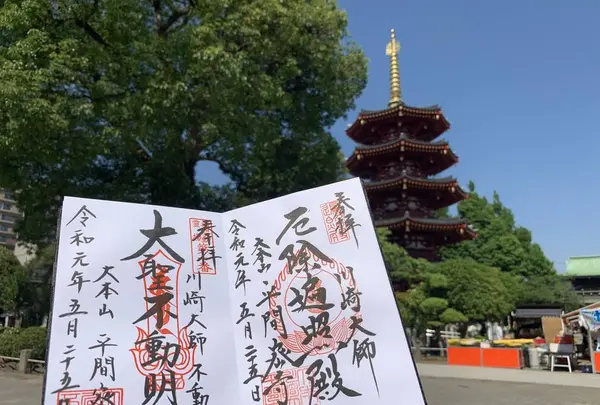 奉拝
川崎大師
厄除遍照殿
大本山 平間寺
令和元年五月二十五日
奉拝
川崎大師不動
大聖不動明
大本山 平間寺
令和元年五月二十五